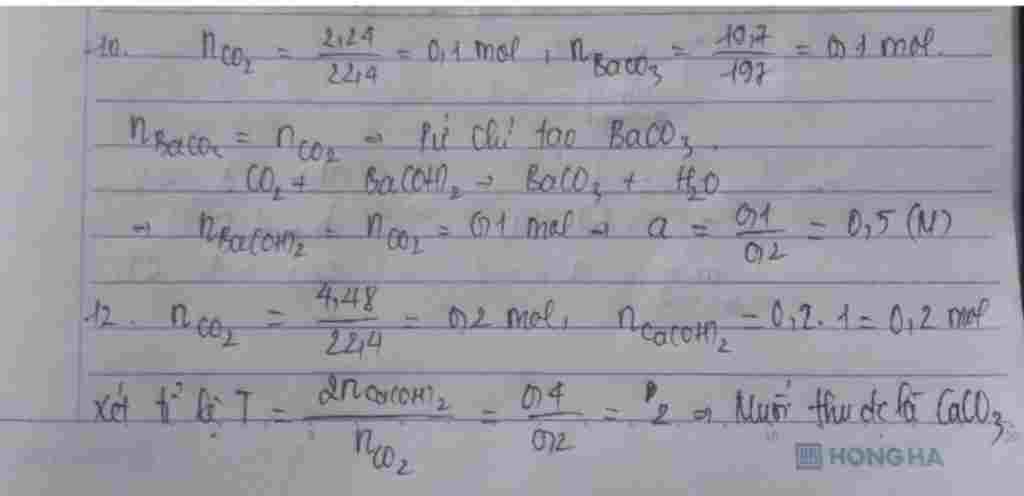 10. n_CO₂ = 2,24/22,4 = 0,1 mol, n_BaCO₃ = 19,7/197 = 0,1 mol.
n_BaCO₃ = n_CO₂ → Pứ chỉ tạo BaCO₃.
CO₂ + Ba(OH)₂ → BaCO₃ + H₂O
→ n_Ba(OH)₂ = n_CO₂ = 0,1 mol → a = 0,1/0,2 = 0,5 (M)
12. n_CO₂ = 4,48/22,4 = 0,2 mol, n_Ca(OH)₂ = 0,2.1 = 0,2 mol
xét tỉ lệ T = 2n_Ca(OH)₂/n_CO₂ = 0,4/0,2 = 2 → Muối thu đc là CaCO₃
HONG HA